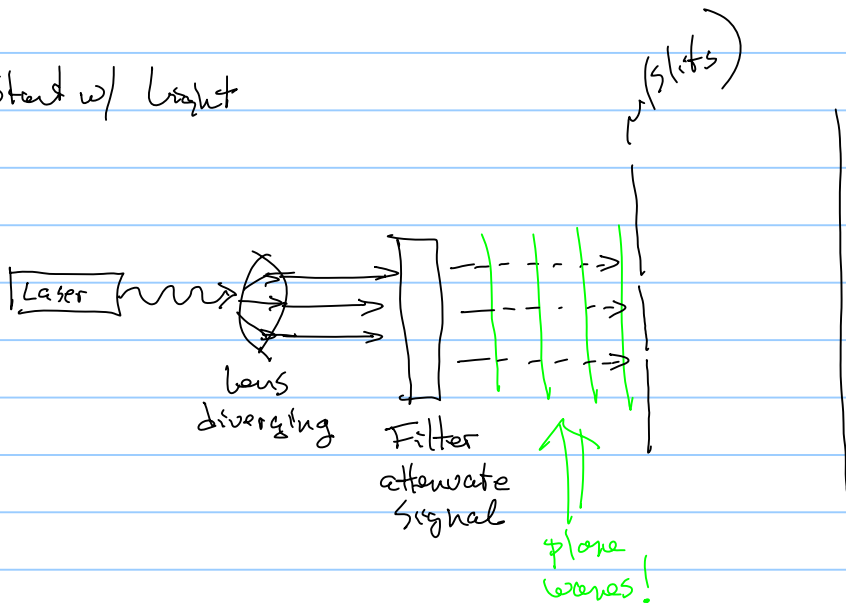 Start w/ Light
(slits)
Laser
Lens
diverging
Filter
attenuate
signal
plane
waves!